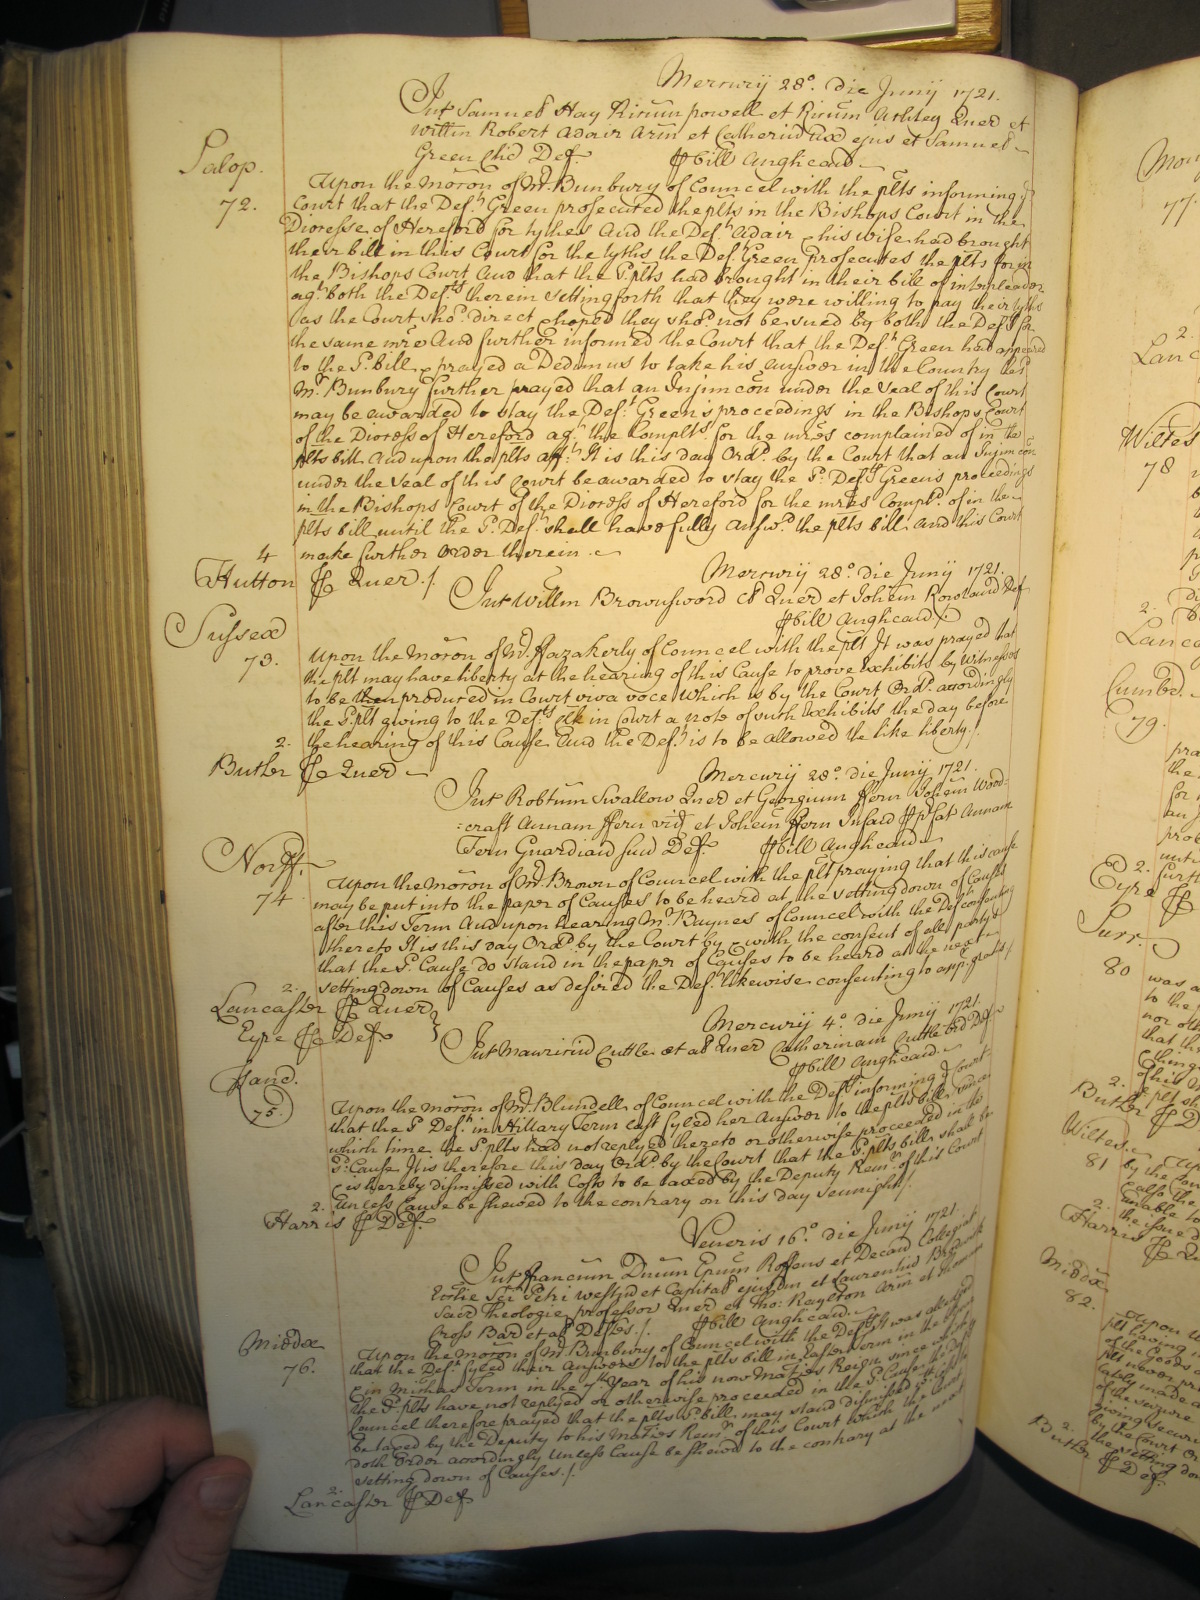 Mercurij 28.o die Junij 1721.
Int Samuel Hay Ricum powell et Ricum Ashley Quer et
Willm Robert Adair Arm et Catherin ux ejus et Samuel
Green Clic Def. P bill Anglican
Salop.
72.
Upon the mocon of Mr. Bunbury of Councel with the plts informing ye
Court that the Deft. Green prosecuted the plts in the Bishops Court in the
Diocesse of Hereford for tythes And the Deft. Adair & his wife had brought
their bill in this Court for the tyths the Deft. Green prosecutes the plts for in
the Bishops Court And that the sd. plts had brought in their bill of interpleader
agt. both the Defts. therein setting forth that they were willing to pay their tyths
as the Court shod. direct & hoped they shod. not be sued by both the Defts. for
the same mre And further informed the Court that the Deft. Green had appeared
to the sd. bill & prayed a Dedimus to take his answer in the Country the sd.
Mr. Bunbury further prayed that an Injuncon under the Seal of this Court
may be awarded to stay the Deft. Green's proceedings in the Bishops Court
of the Diocess of Hereford agt. the Complts. for the mres complained of in the
plts bill And upon the plts afft. It is this day Ord. by the Court that an Injuncon
under the Seal of this Court be awarded to stay the sd. Deft. Greens proceedings
in the Bishops Court of the Diocess of Hereford for the mres Compd. of in the
plts bill until the sd. Deft. shall have fully answd. the plts bill and this Court
4 make further Order therein.
Hutton P Quer./
Mercurij 28.o die Junij 1721.
Int Willm Brownsword Cl Quer et Johem Rowland Def
P bill Anglican
Sussex
73.
Upon the mocon of Mr. Fazakerly of Councel with the plt It was prayed that
the plt may have liberty at the hearing of this Cause to prove Exhibits by Witnesses
to be then produced in Court viva voce Which is by the Court Ord. accordingly
the sd. plt giving to the Defts. Clk in Court a note of such Exhibits the day before
2. the hearing of this Cause And the Deft. is to be allowed the like liberty./
Butler P Quer
Mercurij 28.o die Junij 1721.
Int Robtum Swallow Quer et Georgium Fern Johem Wood:
:craft Annam Fern vid et Johem Fern Infant P pfat Annam
Fern Guardian suu Def. P bill Anglican
Norff.
74
Upon the mocon of Mr. Brown of Councel with the plt praying that this cause
may be put into the paper of Causes to be heard at the setting down of Causes
after this Term And upon hearing Mr. Baynes of Councel with the Def consenting
thereto It is this day Ord. by the Court by & with the consent of all partys
that the sd. Cause do stand in the paper of Causes to be heard at the next
2. setting down of Causes as desired the Deft. likewise consenting to appr. gratis/
Lancaster P Quer
Eyre P Def.
Mercurij 4.o die Junij 1721.
Int Mauritiu Cuttler et al Quer Catherinam Cuttler Def
P bill Anglican.
75.
Upon the mocon of Mr. Blundell of Councel with the Deft informing ye Court
that the sd. Deft. in Hillary Term last fyled her Answer to the plts bill since
which time the sd. plts had not replyed thereto or otherwise proceeded in the
sd. Cause It is therefore this day Ord. by the Court that the sd. plts bill shall be
& is hereby dismissed with Costs to be taxed by the Deputy Remr. of this Court
2. Unless Cause be shewed to the contrary on this day sennight/
Harris P Def.
Veneris 16.o die Junij 1721.
Int Francum Dnum Epum Roffens et Decan Collegiat
Ecclie Sci Petri Westm et Capital ejusdm et Laurentiu Brodrick
Sacr Theologie professor Quer et Tho: Raylton Arm et Thomam
Cross Bar et al Defts./. P bill Anglican.
Middx
76.
Upon the mocon of Mr. Bunbury of Councel with the Defts It was alledged
that the Defts. fyled their answers to the plts bill in Easter Term in the
& in Michas Term in the 7th. Year of his now Maties Reign since which
the sd. plts have not replyed or otherwise proceeded in the sd. Cause the Defts
Councel therefore prayed that the plts sd. bill may stand dismissed with Costs to
be taxed by the Deputy to his Maties Remr. of this Court which the Court
doth Order accordingly Unless Cause be shewd to the contrary at the next
setting down of Causes./.
2.
Lancaster P Def
77.
2.
Lanc
Wiltes
78
2.
Lanca
Cumbd.
79.
2.
Eyre P
Surr.
80
was a
to the
nor oth
that th
2.
Butler P D
Wiltes.
81
by the Cou
Cause the
unable to
2. the issue d
Harris P Qu
Middx
82.
Upon t
plt having
of the Goods
plt never pr
lately made a
of the seizure
giving securi
by the Court Or
the setting do
2.
Butler P Def.